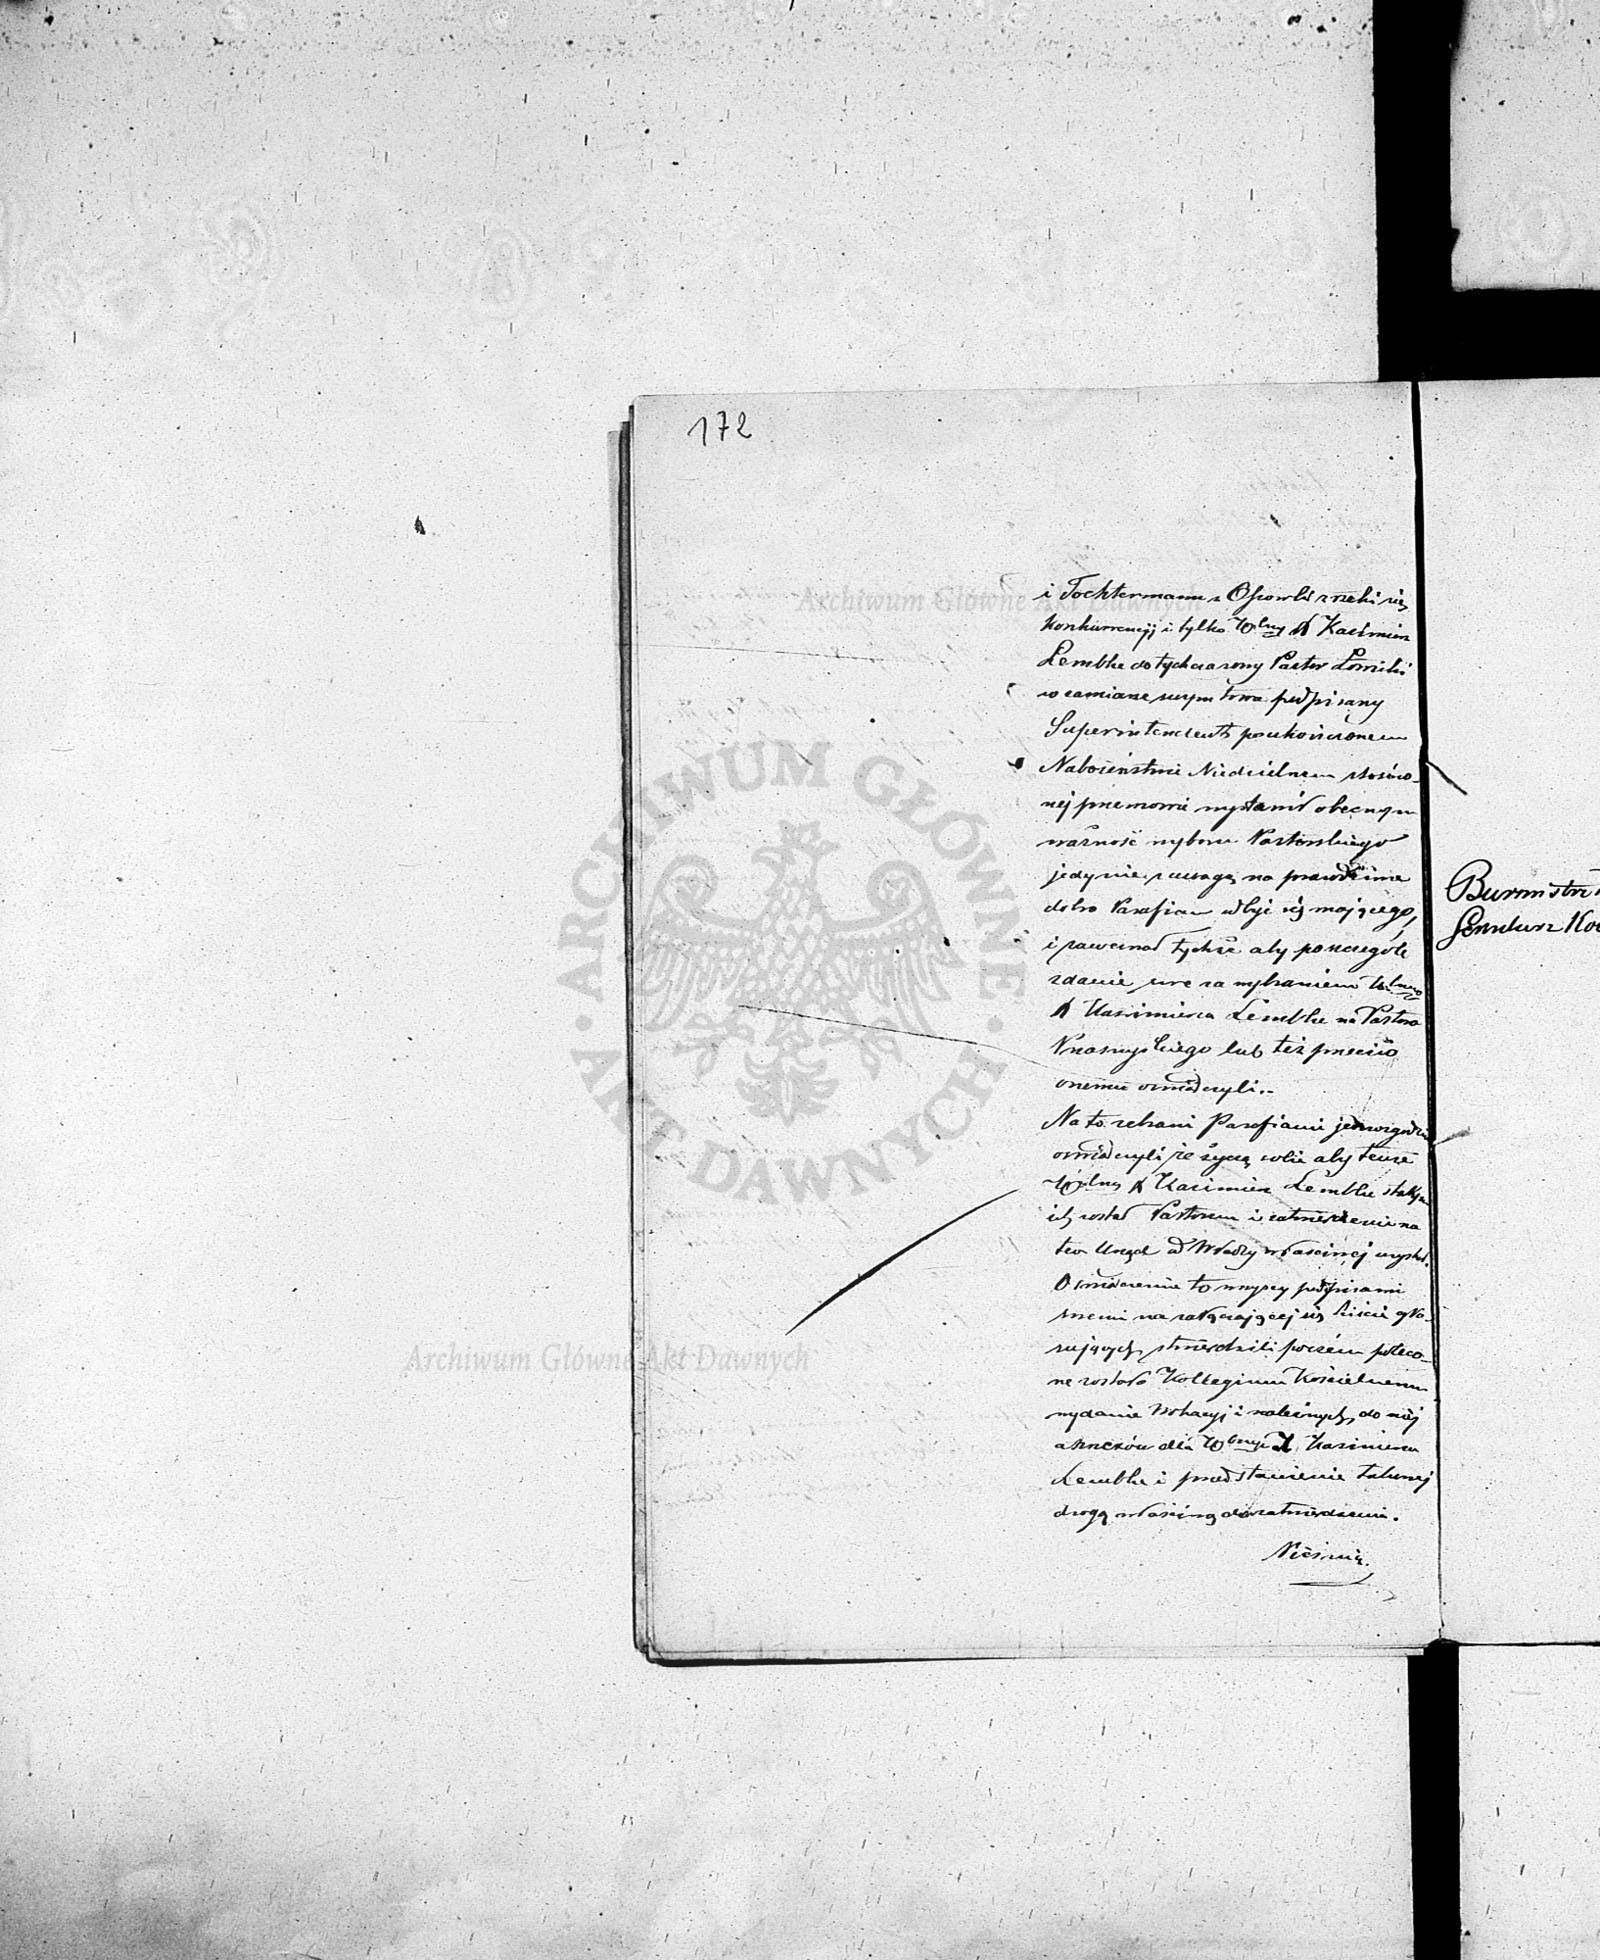 172
i Tochtermann z Osowki zrzekli się
Konkurrencyi i tylko Wlny X Kazimierz
Lembke dotychczasowy Pastor
w zamiane wzym podpisany
Superintendent po ukończonem
Nabożeństwie Niedzielnem stosow-
nej przemowie wystawił obecnym
ważność wyboru Pastorskiego
jedynie z uwagą na prawdziwe
dobro Parafian odbyć się mającego,
i zawezwał tychże aby poszczególe
zdanie swe za wybraniem Wlnego
X Kazimierza Lembke na Pastora
Przasnyskiego lub też przeciw
onemu oświadczyli.-
Na to zebrani Parafianie jednozgodnie
oświadczyli że życzą sobie aby tenże
Wielny X Kazimierz Lembke stałym
ich został Pastorem i zatwierdzenie na
ten Urząd od Władzy właściwej uzyskał.
Oświadczenie to wszyscy podpisami
swemi na załączającej się liście gło-
sujących stwierdzili poczém poleco-
ne zostało Kollegium Kościelnemu
wydanie Wokacyi i należnych do niéj
annexów dla Wlnego X Kazimierza
Lembke i przedstawienie takowej
drogą właściwą do zatwierdzenia.
Nieśmię.
Burmistrz
Archiwum Główne Akt Dawnych
Archiwum Główne Akt Dawnych
ARCHIWUM GŁÓWNE
· AKT DAWNYCH ·